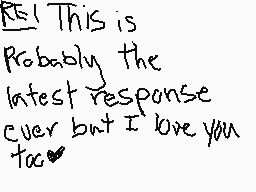 RE! This is
Probably the
latest response
ever but I love you
too♥